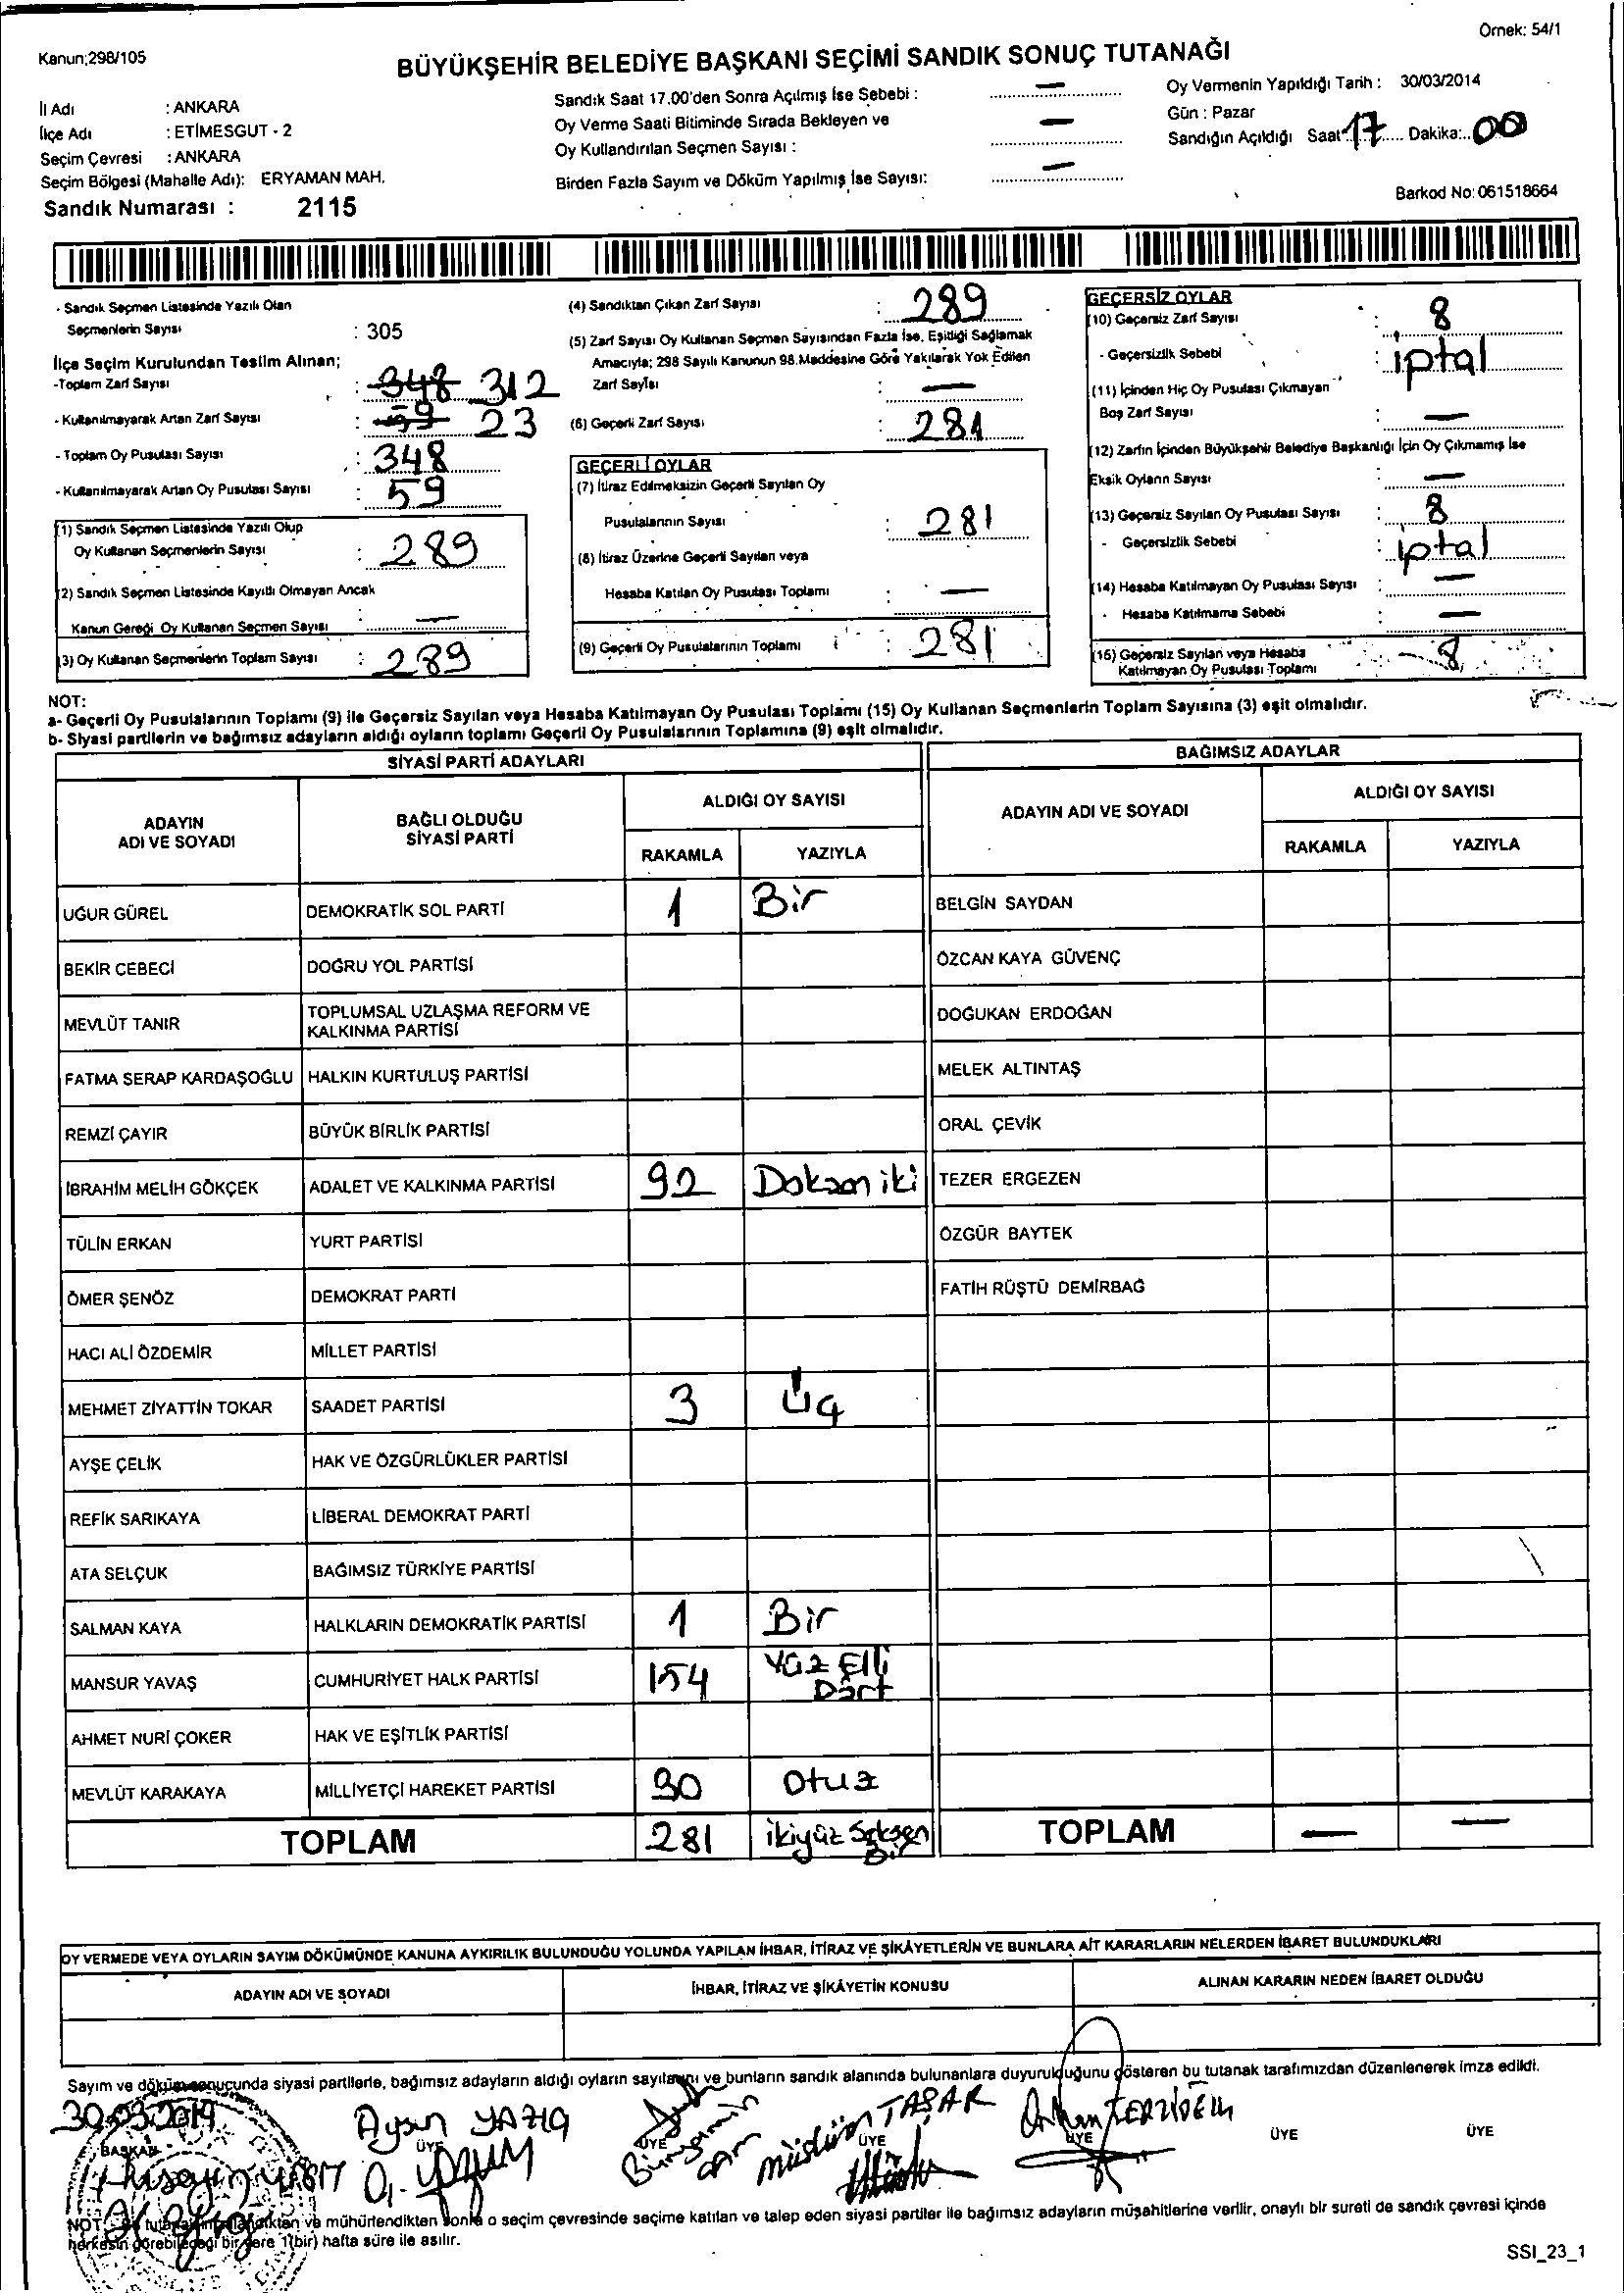 Örnek: 54/1
Kanun;298/105
BÜYÜKŞEHİR BELEDİYE BAŞKANI SEÇİMİ SANDIK SONUÇ TUTANAĞI
İl Adı : ANKARA
İlçe Adı : ETİMESGUT - 2
Seçim Çevresi : ANKARA
Seçim Bölgesi (Mahalle Adı): ERYAMAN MAH.
Sandık Numarası : 2115
Sandık Saat 17.00'den Sonra Açılmış İse Sebebi : —
Oy Verme Saati Bitiminde Sırada Bekleyen ve
Oy Kullandırılan Seçmen Sayısı : —
Birden Fazla Sayım ve Döküm Yapılmış İse Sayısı: —
Oy Vermenin Yapıldığı Tarih : 30/03/2014
Gün : Pazar
Sandığın Açıldığı Saat 17 Dakika:.. 00
Barkod No: 061518664
- Sandık Seçmen Listesinde Yazılı Olan
Seçmenlerin Sayısı : 305
İlçe Seçim Kurulundan Teslim Alınan;
-Toplam Zarf Sayısı : 348 312
- Kullanılmayarak Artan Zarf Sayısı : 59 23
- Toplam Oy Pusulası Sayısı : 348
- Kullanılmayarak Artan Oy Pusulası Sayısı : 59
(1) Sandık Seçmen Listesinde Yazılı Olup
Oy Kullanan Seçmenlerin Sayısı : 289
(2) Sandık Seçmen Listesinde Kayıtlı Olmayan Ancak
Kanun Gereği Oy Kullanan Seçmen Sayısı —
(3) Oy Kullanan Seçmenlerin Toplam Sayısı : 289
(4) Sandıktan Çıkan Zarf Sayısı : 289
(5) Zarf Sayısı Oy Kullanan Seçmen Sayısından Fazla İse, Eşitliği Sağlamak
Amacıyla; 298 Sayılı Kanunun 98.Maddesine Göre Yakılarak Yok Edilen
Zarf Sayısı : —
(6) Geçerli Zarf Sayısı : 281
GEÇERLİ OYLAR
(7) İtiraz Edilmeksizin Geçerli Sayılan Oy
Pusulalarının Sayısı : 281
(8) İtiraz Üzerine Geçerli Sayılan veya
Hesaba Katılan Oy Pusulası Toplamı : —
(9) Geçerli Oy Pusulalarının Toplamı : 281
GEÇERSİZ OYLAR
(10) Geçersiz Zarf Sayısı : 8
- Geçersizlik Sebebi : iptal
(11) İçinden Hiç Oy Pusulası Çıkmayan
Boş Zarf Sayısı : —
(12) Zarfın İçinden Büyükşehir Belediye Başkanlığı İçin Oy Çıkmamış İse
Eksik Oyların Sayısı : —
(13) Geçersiz Sayılan Oy Pusulası Sayısı : 8
- Geçersizlik Sebebi : iptal
(14) Hesaba Katılmayan Oy Pusulası Sayısı : —
- Hesaba Katılmama Sebebi : —
(15) Geçersiz Sayılan veya Hesaba
Katılmayan Oy Pusulası Toplamı 8
NOT:
a- Geçerli Oy Pusulalarının Toplamı (9) ile Geçersiz Sayılan veya Hesaba Katılmayan Oy Pusulası Toplamı (15) Oy Kullanan Seçmenlerin Toplam Sayısına (3) eşit olmalıdır.
b- Siyasi partilerin ve bağımsız adayların aldığı oyların toplamı Geçerli Oy Pusulalarının Toplamına (9) eşit olmalıdır.
SİYASİ PARTİ ADAYLARI BAĞIMSIZ ADAYLAR
ADAYIN ADI VE SOYADI BAĞLI OLDUĞU SİYASİ PARTİ ALDIĞI OY SAYISI ADAYIN ADI VE SOYADI ALDIĞI OY SAYISI
RAKAMLA YAZIYLA RAKAMLA YAZIYLA
UĞUR GÜREL DEMOKRATİK SOL PARTİ 1 Bir BELGİN SAYDAN
BEKİR CEBECİ DOĞRU YOL PARTİSİ ÖZCAN KAYA GÜVENÇ
MEVLÜT TANIR TOPLUMSAL UZLAŞMA REFORM VE KALKINMA PARTİSİ DOĞUKAN ERDOĞAN
FATMA SERAP KARDAŞOĞLU HALKIN KURTULUŞ PARTİSİ MELEK ALTINTAŞ
REMZİ ÇAYIR BÜYÜK BİRLİK PARTİSİ ORAL ÇEVİK
İBRAHİM MELİH GÖKÇEK ADALET VE KALKINMA PARTİSİ 92 Doksan iki TEZER ERGEZEN
TÜLİN ERKAN YURT PARTİSİ ÖZGÜR BAYTEK
ÖMER ŞENÖZ DEMOKRAT PARTİ FATİH RÜŞTÜ DEMİRBAĞ
HACI ALİ ÖZDEMİR MİLLET PARTİSİ
MEHMET ZİYATTİN TOKAR SAADET PARTİSİ 3 Üç
AYŞE ÇELİK HAK VE ÖZGÜRLÜKLER PARTİSİ
REFİK SARIKAYA LİBERAL DEMOKRAT PARTİ
ATA SELÇUK BAĞIMSIZ TÜRKİYE PARTİSİ
SALMAN KAYA HALKLARIN DEMOKRATİK PARTİSİ 1 Bir
MANSUR YAVAŞ CUMHURİYET HALK PARTİSİ 154 Yüz Elli Dört
AHMET NURİ ÇOKER HAK VE EŞİTLİK PARTİSİ
MEVLÜT KARAKAYA MİLLİYETÇİ HAREKET PARTİSİ 30 Otuz
TOPLAM 281 ikiyüz Seksen Bir TOPLAM — —
OY VERMEDE VEYA OYLARIN SAYIM DÖKÜMÜNDE KANUNA AYKIRILIK BULUNDUĞU YOLUNDA YAPILAN İHBAR, İTİRAZ VE ŞİKÂYETLERİN VE BUNLARA AİT KARARLARIN NELERDEN İBARET BULUNDUKLARI
ADAYIN ADI VE SOYADI İHBAR, İTİRAZ VE ŞİKÂYETİN KONUSU ALINAN KARARIN NEDEN İBARET OLDUĞU
Sayım ve döküm sonucunda siyasi partilerle, bağımsız adayların aldığı oyların sayılarını ve bunların sandık alanında bulunanlara duyurulduğunu gösteren bu tutanak tarafımızdan düzenlenerek imza edildi.
30.03.2014
Aysun Bünyamin TAŞAR
BAŞKAN ÜYE ÜYE ÜYE ÜYE ÜYE ÜYE
NOT: Bu tutanak imzalandıktan ve mühürlendikten sonra o seçim çevresinde seçime katılan ve talep eden siyasi partiler ile bağımsız adayların müşahitlerine verilir, onaylı bir sureti de sandık çevresi içinde
herkesin görebileceği bir yere 1(bir) hafta süre ile asılır.
SSI_23_1